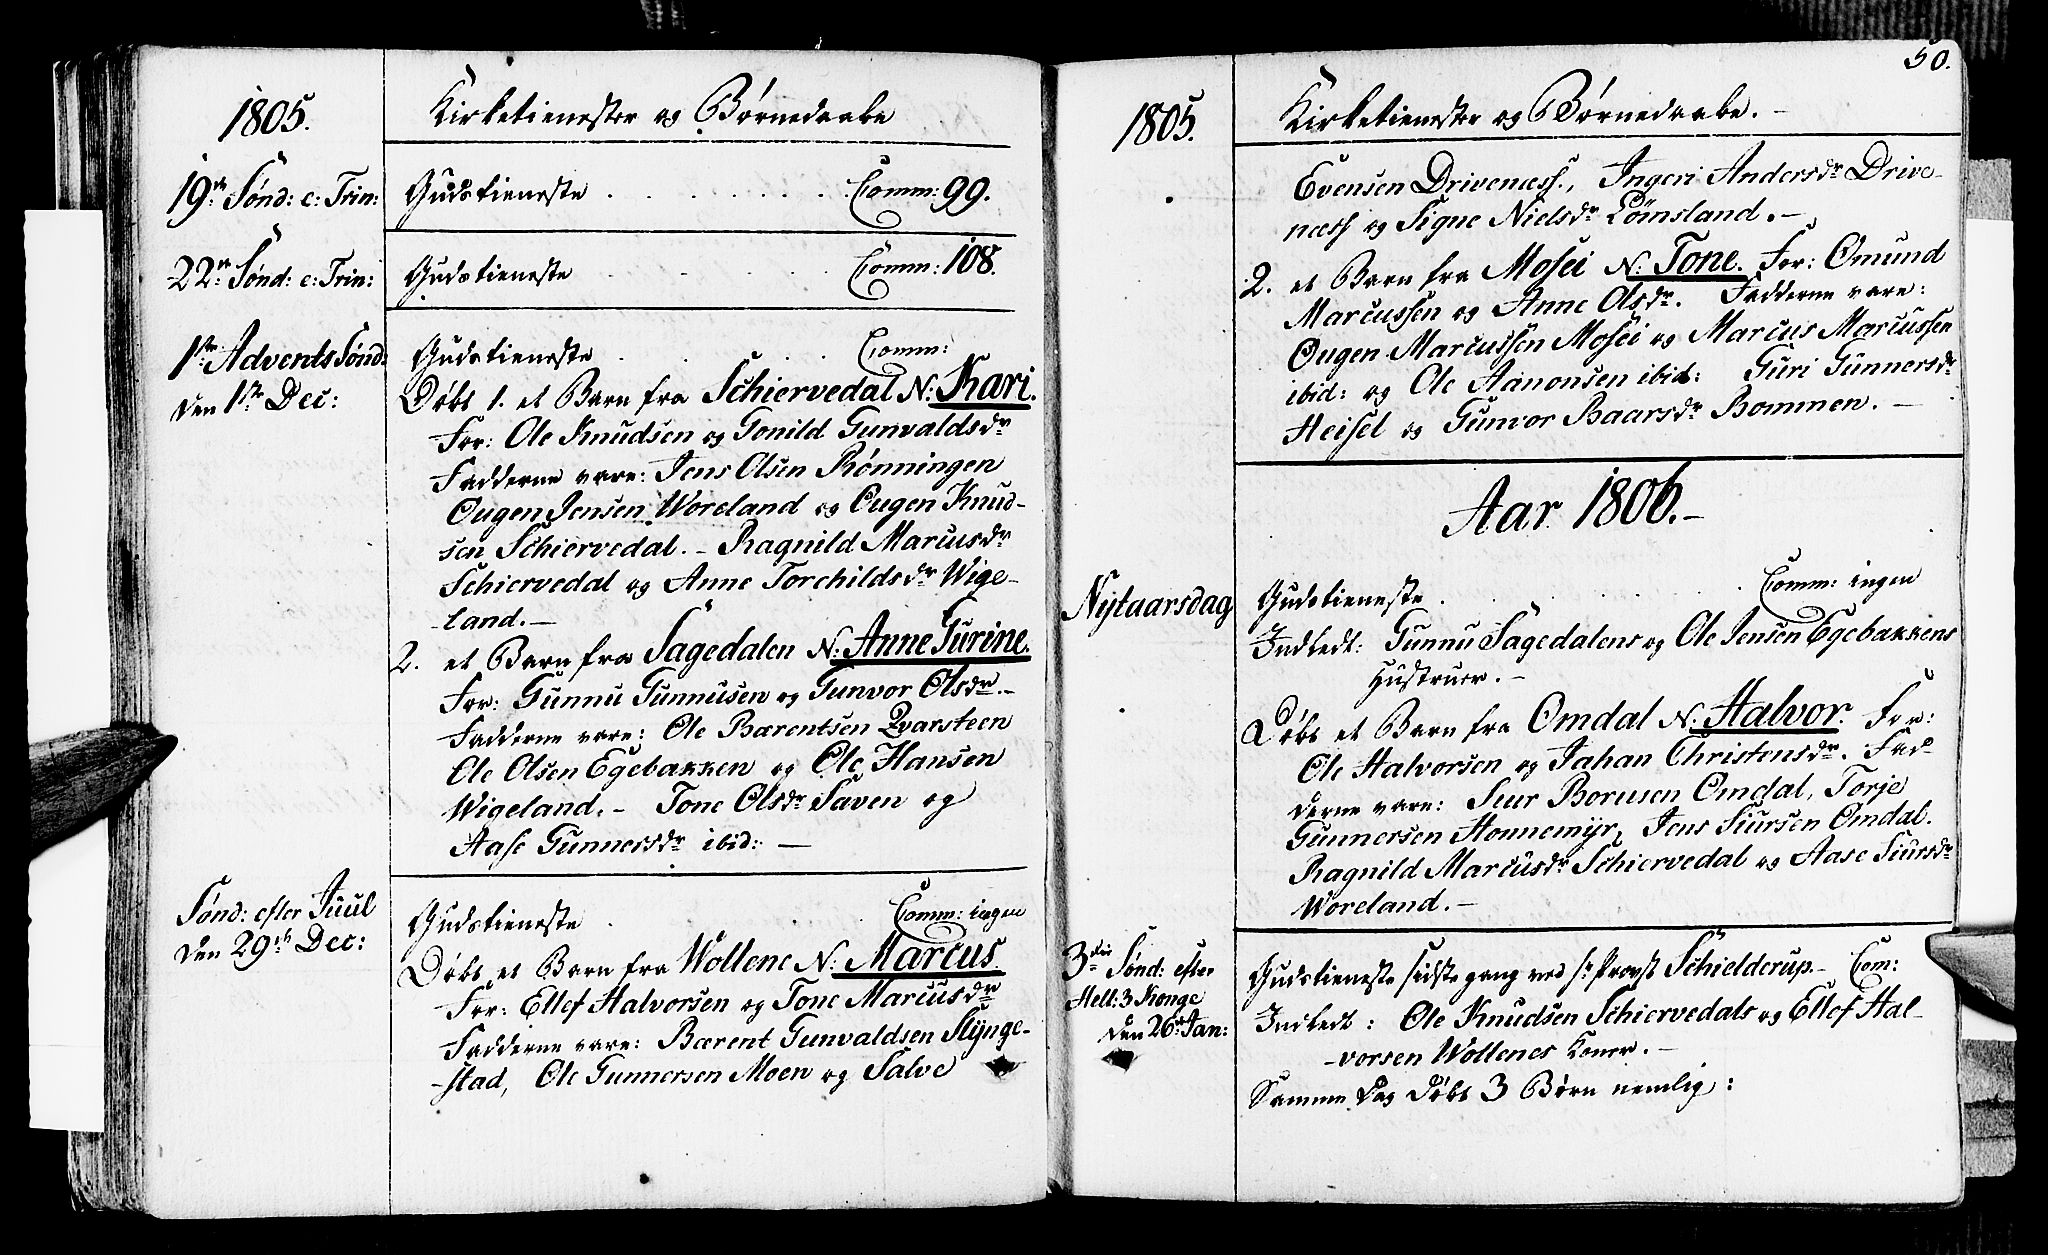 1805.
Kirketienester og Børnedaabe
19de Sønd: e: Trin:
Gudstieneste . . . . . . . Comm: 99.
22de Sønd: e: Trin:
Gudstieneste . . . . . Comm: 108.
1ste Advents Sønd:
den 1ste Dec:
Gudstieneste . . . . Comm:
Døbt 1. et Barn fra Schiervedal N: Kari.
For: Ole Knudsen og Gonild Gunvaldsdr
Fadderne vare: Jens Olsen Rønningen
Ougen Jensen Woreland og Ougen Knud-
sen Schiervedal. – Ragnild Marcusdr
Schiervedal og Anne Torchildsdr Wige-
-land. –
2. et Barn fra Sagedalen N: Anne Gurine.
For: Gunnu Gunnusen og Gunvor Olsdr. –
Fadderne vare: Ole Bærentsen Qvarsteen
Ole Olsen Egebakken og Ole Hansen
Wigeland. – Tone Olsdr Saven og
Aase Gunnersdr ibid: –
Sønd: efter Juul
den 29de Dec:
Gudstieneste . . Comm: ingen
Døbt et Barn fra Wollene N: Marcus
For: Ellef Halvorsen og Tone Marcusdr
Fadderne vare: Bærent Gunvaldsen Slynge-
-stad, Ole Gunnersen Moen og Salve
50.
1805.
Kirketienester og Børnedaabe. –
Evensen Drivenæss., Ingeri Andersdr Drive-
næss og Signe Nielsdr Lømsland. –
2. et Barn fra Mosei N: Tone. For: Omund
Marcussen og Anne Olsdr. Fadderne vare:
Ougen Marcussen Mosei og Marcus Marcussen
ibid: og Ole Aanonsen ibid: Guri Gunnersdr
Heisel og Gunvor Baarsdr Bommen. –
Aar 1806. –
Nytaarsdag
Gudstieneste . . . . . Comm: ingen
Indledt: Gunnu Sagedalens og Ole Jensen Egebakkens
Hustruer. –
Døbt et Barn fra Omdal N: Halvor. For:
Ole Halvorsen og Jahan Christensdr. Fad-
derne vare: Siur Borusen Omdal, Torje
Gunnersen Honnemyr, Jens Siursen Omdal.
Ragnild Marcusdr Schiervedal og Aase Siursdr
Woreland. –
3die Sønd: efter
Hell: 3 Konge
den 26de Jan:
Gudstieneste sidste gang ved Hr Provst Schielderup. – Com:
Indledt: Ole Knudsen Schiervedals og Ellef Hal-
-vorsen Wollenes Koner. –
Samme Dag døbt 3 Børn nemlig: